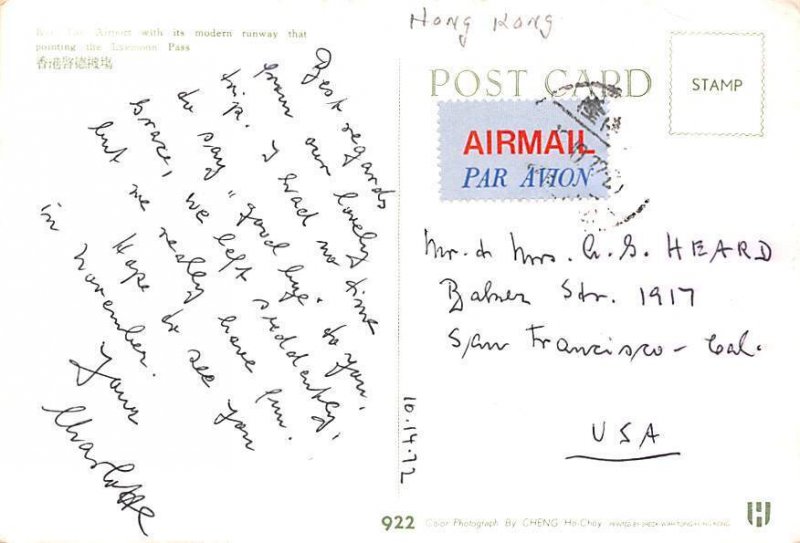 Hong Kong
Kai Tak Airport with its modern runway that
pointing the Lyemoon Pass
香港啓德機場
POST CARD
STAMP
AIRMAIL
PAR AVION
Best regards
from our lovely
trip. I had no time
to say "good bye" to you,
Grace, we left suddenly,
but we really have fun.
Hope to see you
in November.
Yours
Charlotte
Mr. & Mrs. G. G. HEARD
Str. 1917
San Francisco - Cal.
USA
10.14.72
922 Color Photograph By CHENG Ho-Choy